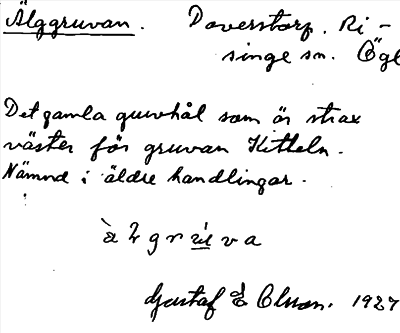 Älggruvan. Doverstorp. Ri-
singe sn. Ögl
Det gamla gruvhål som är strax
väster för gruvan Kitteln.
Nämnd i äldre handlingar.
Gustaf E Olsson. 1927